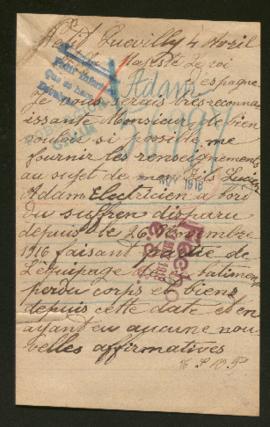 Petit Quevilly 4 Avril
Majesté de roi
d'espagne
Adam
Je vous serais très reconnai
ssante Monsieur de bien
vouloir si posible me
fournir les renseignements
au sujet de mon fils Lucien
Adam Electricien a bord
du suffren disparu
depuis le 26 Novembre
1916 faisant partie de
L'équipage batiment
perdu corps et biens
depuis cette date et en
ayant eu aucune nou
velles affirmatives